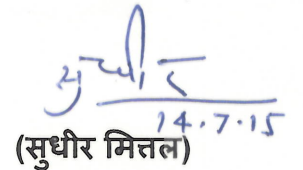 सुधीर
14.7.15
(सुधीर मित्तल)